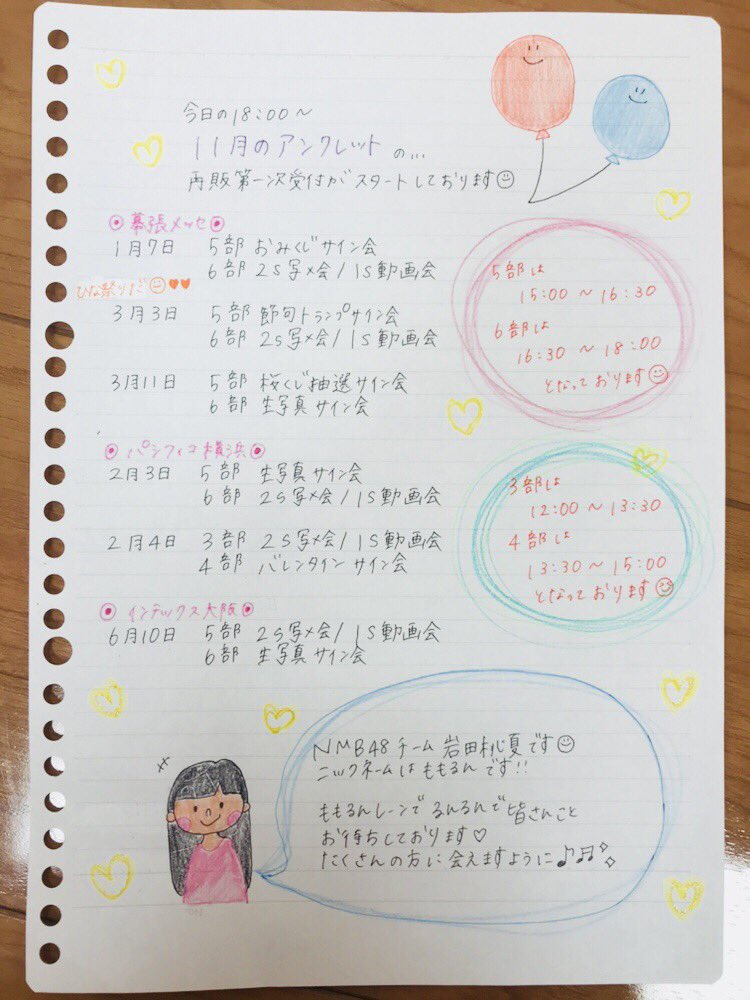 今日の18:00〜
11月のアンクレットの...
再販第一次受付がスタートしております
幕張メッセ
1月7日 5部 おみくじサイン会
6部 2S写メ会/1S動画会
ひな祭りだ
3月3日 5部 節句トランプサイン会
6部 2S写メ会/1S動画会
3月11日 5部 桜くじ抽選サイン会
6部 生写真サイン会
5部は
15:00〜16:30
6部は
16:30〜18:00
となっております
パシフィコ横浜
2月3日 5部 生写真サイン会
6部 2S写メ会/1S動画会
2月4日 3部 2S写メ会/1S動画会
4部 バレンタインサイン会
3部は
12:00〜13:30
4部は
13:30〜15:00
となっております
インテックス大阪
6月10日 5部 2S写メ会/1S動画会
6部 生写真サイン会
NMB48チーム 岩田桃夏です
ニックネームはももるんです!!
ももるんレーンでるんるんで皆さんこと
お待ちしております♡
たくさんの方に会えますように♪♬